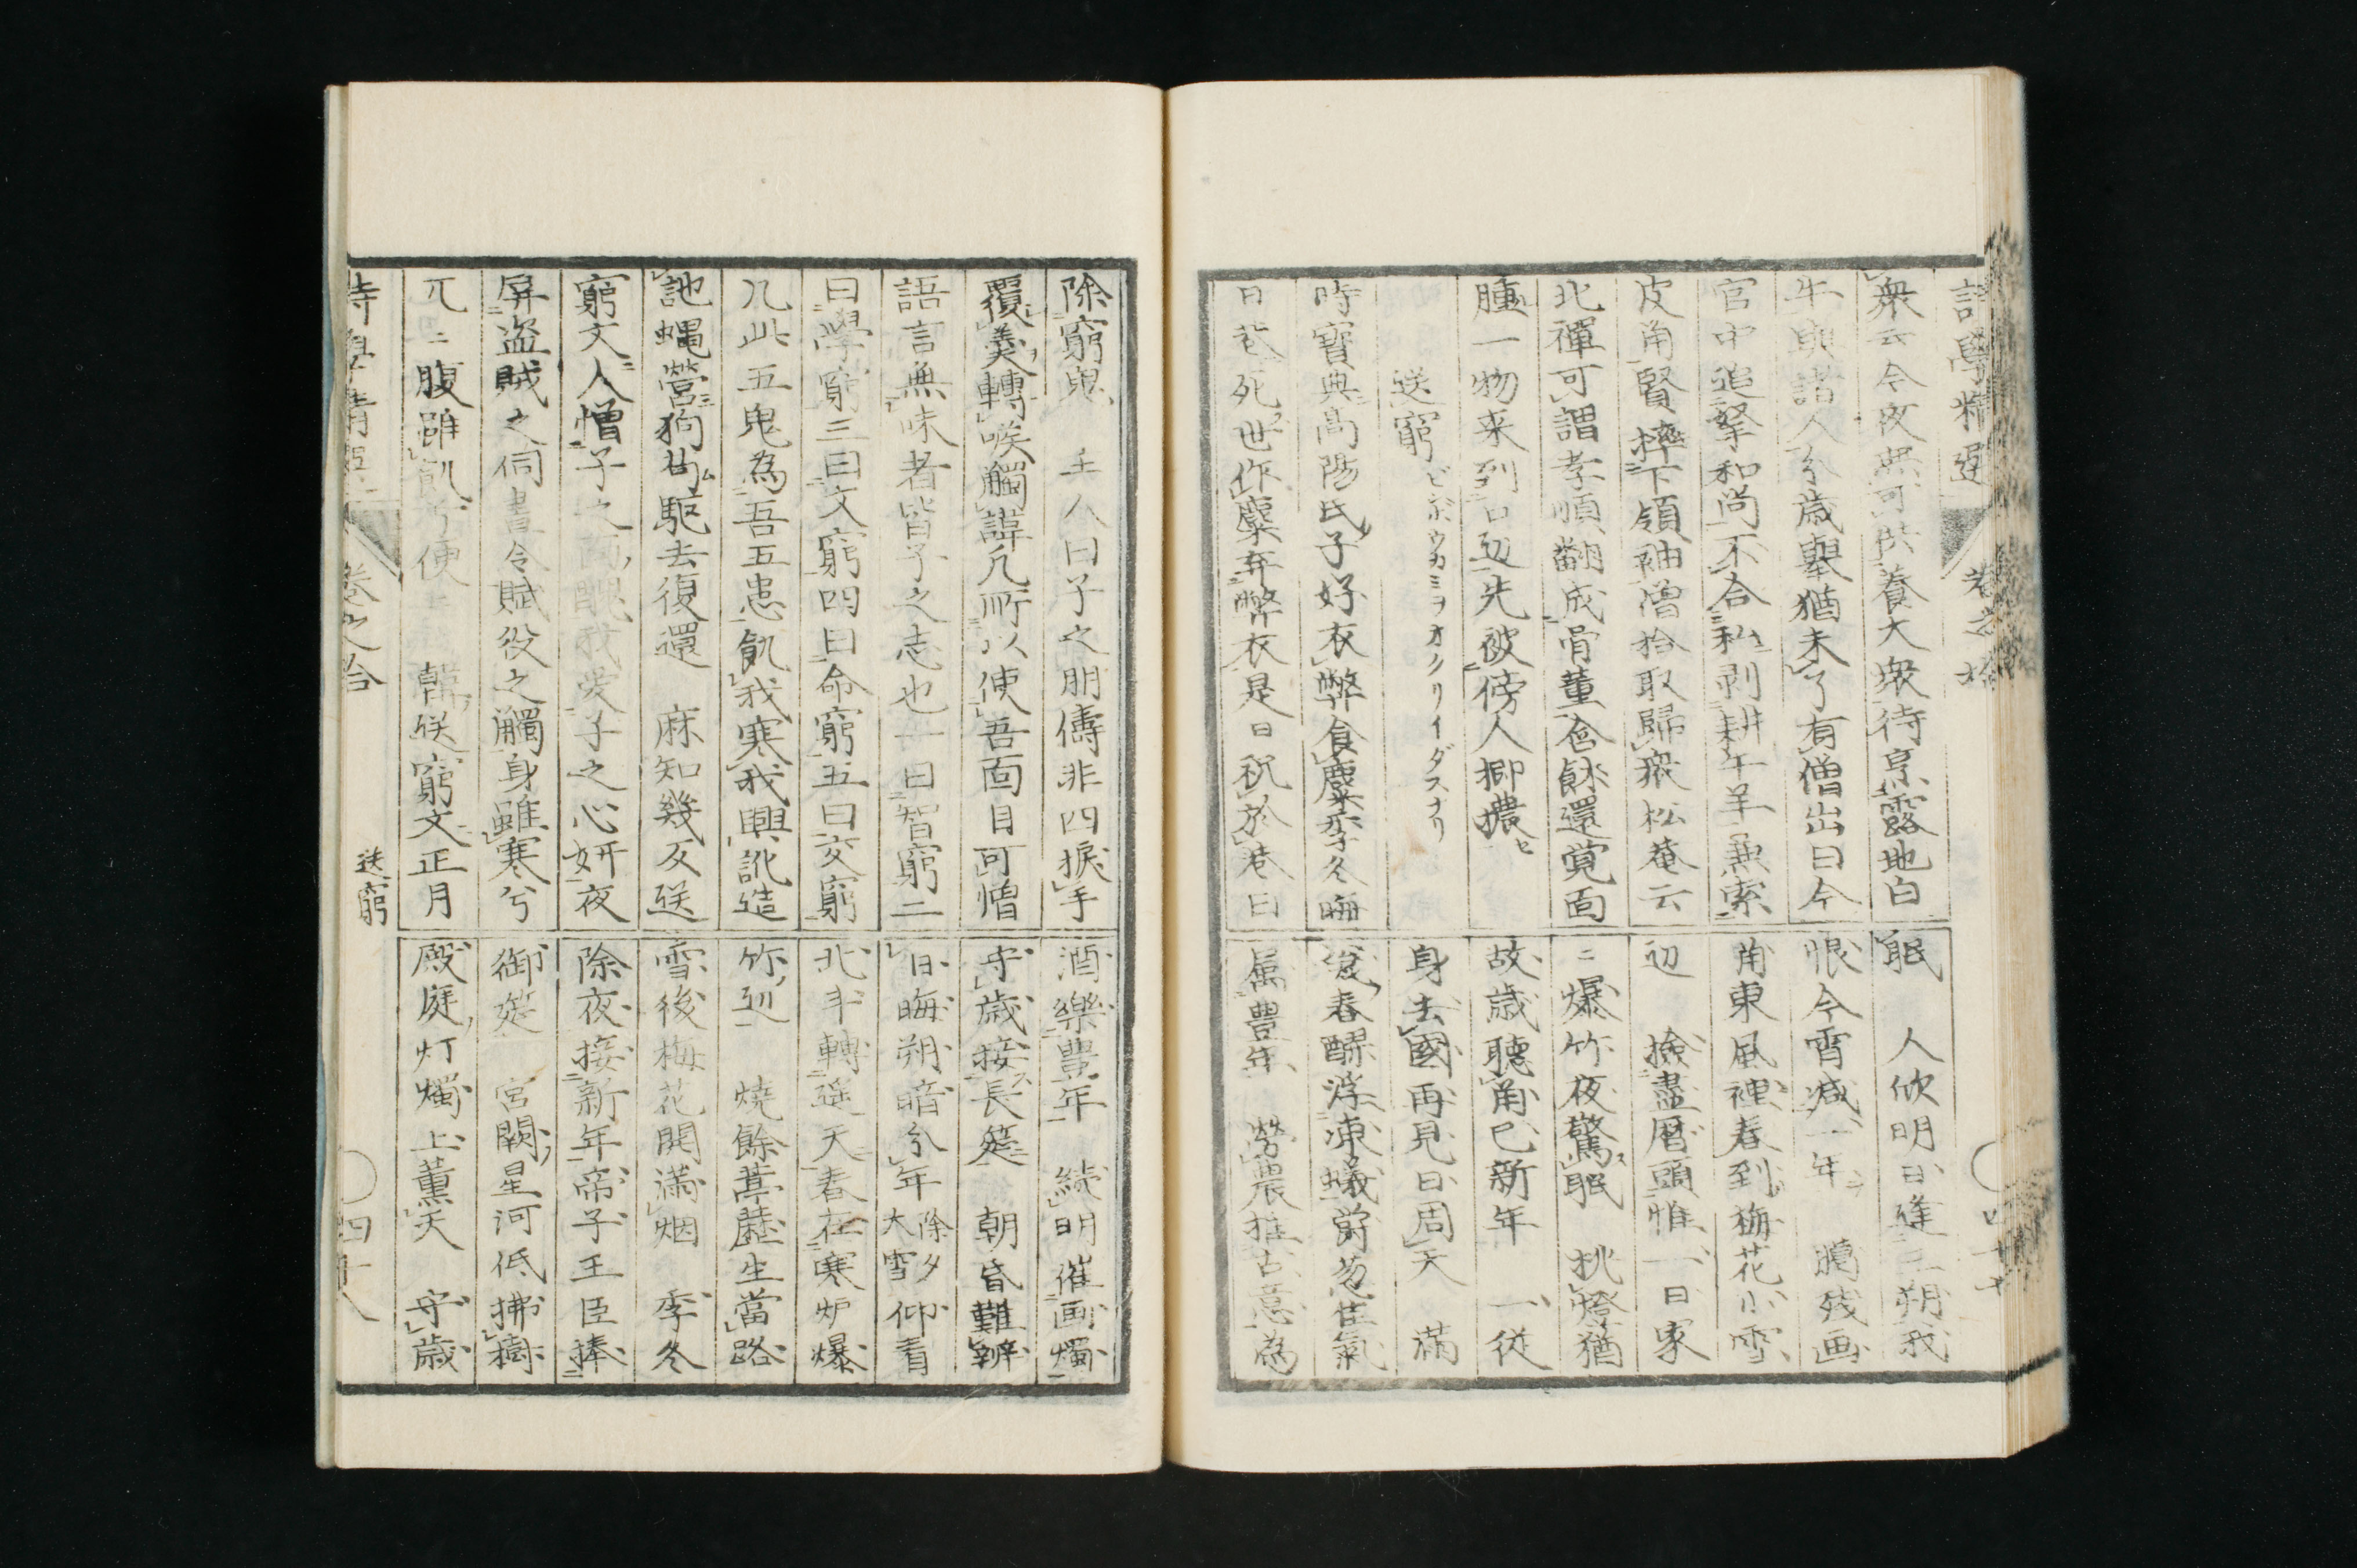 詩學精選 卷之拾
衆云今夜無可供養大衆待烹露地白
牛與諸人分歳舉猶未了有僧出曰今
官中追拏和尚不合私剥耕牛羊兼索
皮角賢摔下領袖僧拾取歸衆松菴云
北禪可謂孝順翻成骨董飽餘還覚面
腫一物来到口辺先被傍人擲攮
送窮 ビンボウカミヲオクリイダスナリ
時寶典高陽氏子好衣弊食麋季冬晦
日巷死世作糜弃弊衣是日祝於巷曰
眠 人欣明日逢正朔我
恨今霄减一年 臈残画
角東風裡春到梅花小雪
辺 撿盡暦頭惟一日家
〻爆竹夜驚眠 挑燈猶
故歳聴角已新年 一従
身去國再見日周天 満
瓮春醪浮凍蟻蔚葱佳氣
属豊年 勞農推古意為
四十七
除窮鬼 主人曰子之朋儔非四捩手
覆羹轉喉觸諱凡所以使吾面目可憎
語言無味者皆子之志也一曰智窮二
曰學窮三曰文窮四曰命窮五曰交窮
凢此五鬼為吾五患飢我寒我興訛造
訑蝿營狗苟駆去復還 麻知幾反送
窮文人憎子之面醜我愛子之心妍夜
屏盗賊之伺書令賦役之觸身雖寒兮
兀〻腹雖飢兮便〻 韓送窮文正月
酒樂豊年 続明催画燭
守歳接長筵 朝昏難辨
日晦朔暗分年 除夕大雪 仰看
北斗轉遥天春在寒炉爆
竹辺 燒餘葉蘼生當路
雪後梅花開満烟 季冬
除夜接新年帝子王臣捧
御筵 宮闕星河低拂樹
殿庭灯燭上薫天 守歳
詩學精選 卷之拾 送窮 四十八